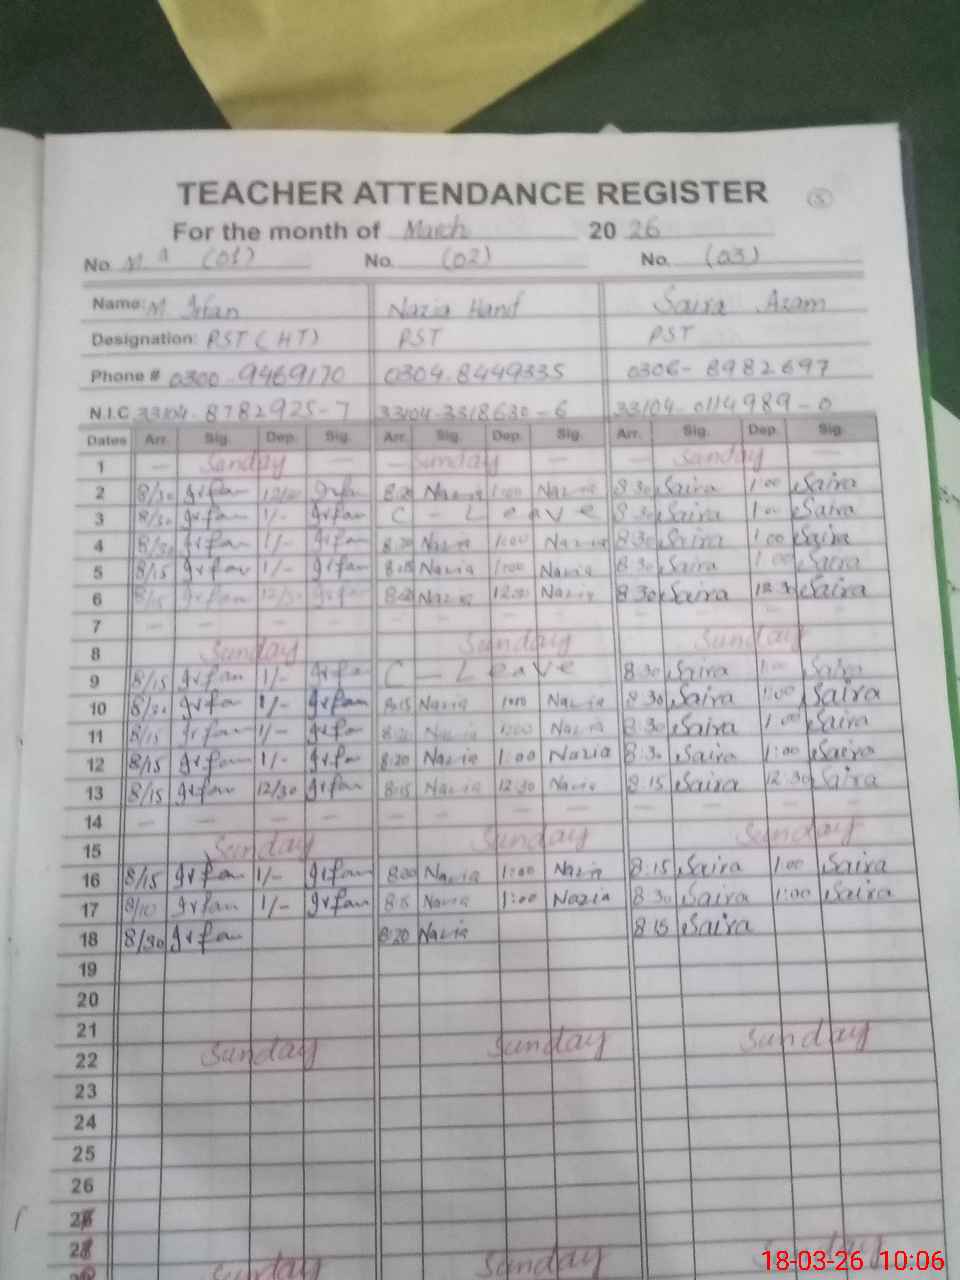 TEACHER ATTENDANCE REGISTER
For the month of March 2026
No. (01) No. (02) No. (03)
Name: M Irfan Nazia Hanif Saira Azam
Designation: PST (HT) PST PST
Phone # 0300-9469170 0304-8449335 0306-8982697
N.I.C 33104-8782925-7 33104-3318630-6 33104-0114989-0
Dates Arr. Sig. Dep. Sig. Arr. Sig. Dep. Sig. Arr. Sig. Dep. Sig.
1 — Sunday — — Sunday — Sunday —
2 8/30 Irfan Irfan 8:20 Nazia 1:00 Nazia 8:30 Saira 1:00 Saira
3 8/30 Irfan 1/- Irfan C - Leave 8:30 Saira 1:00 Saira
4 8/30 Irfan 1/- Irfan 8:20 Nazia 1:00 Nazia 8:30 Saira 1:00 Saira
5 8/15 Irfan 1/- Irfan 8:15 Nazia 1:00 Nazia 8:30 Saira 1:00 Saira
6 8/15 Irfan 12/30 Irfan Nazia Nazia 8:30 Saira 12:30 Saira
7 — — — — — — — — — — — —
8 Sunday Sunday Sunday
9 8/15 Irfan 1/- Irfan C - Leave 8:30 Saira 1:00 Saira
10 Irfan 1/- Irfan 8:15 Nazia 1:00 Nazia 8:30 Saira 1:00 Saira
11 8/15 Irfan 1/- Irfan Nazia 1:00 Nazia 8:30 Saira 1:00 Saira
12 8/15 Irfan 1/- Irfan 8:20 Nazia 1:00 Nazia 8:30 Saira 1:00 Saira
13 8/15 Irfan 12/30 Irfan 8:15 Nazia 12:30 Nazia 8:15 Saira 12:30 Saira
14 — — — — — — — — — — — —
15 Sunday Sunday Sunday
16 8/15 Irfan 1/- Irfan 8:20 Nazia 1:00 Nazia 8:15 Saira 1:00 Saira
17 8/10 Irfan 1/- Irfan 8:15 Nazia 1:00 Nazia 8:30 Saira 1:00 Saira
18 8/30 Irfan 8:20 Nazia 8:15 Saira
19
20
21
22 Sunday Sunday Sunday
23
24
25
26
27
28
Sunday Sunday Sunday
18-03-26 10:06